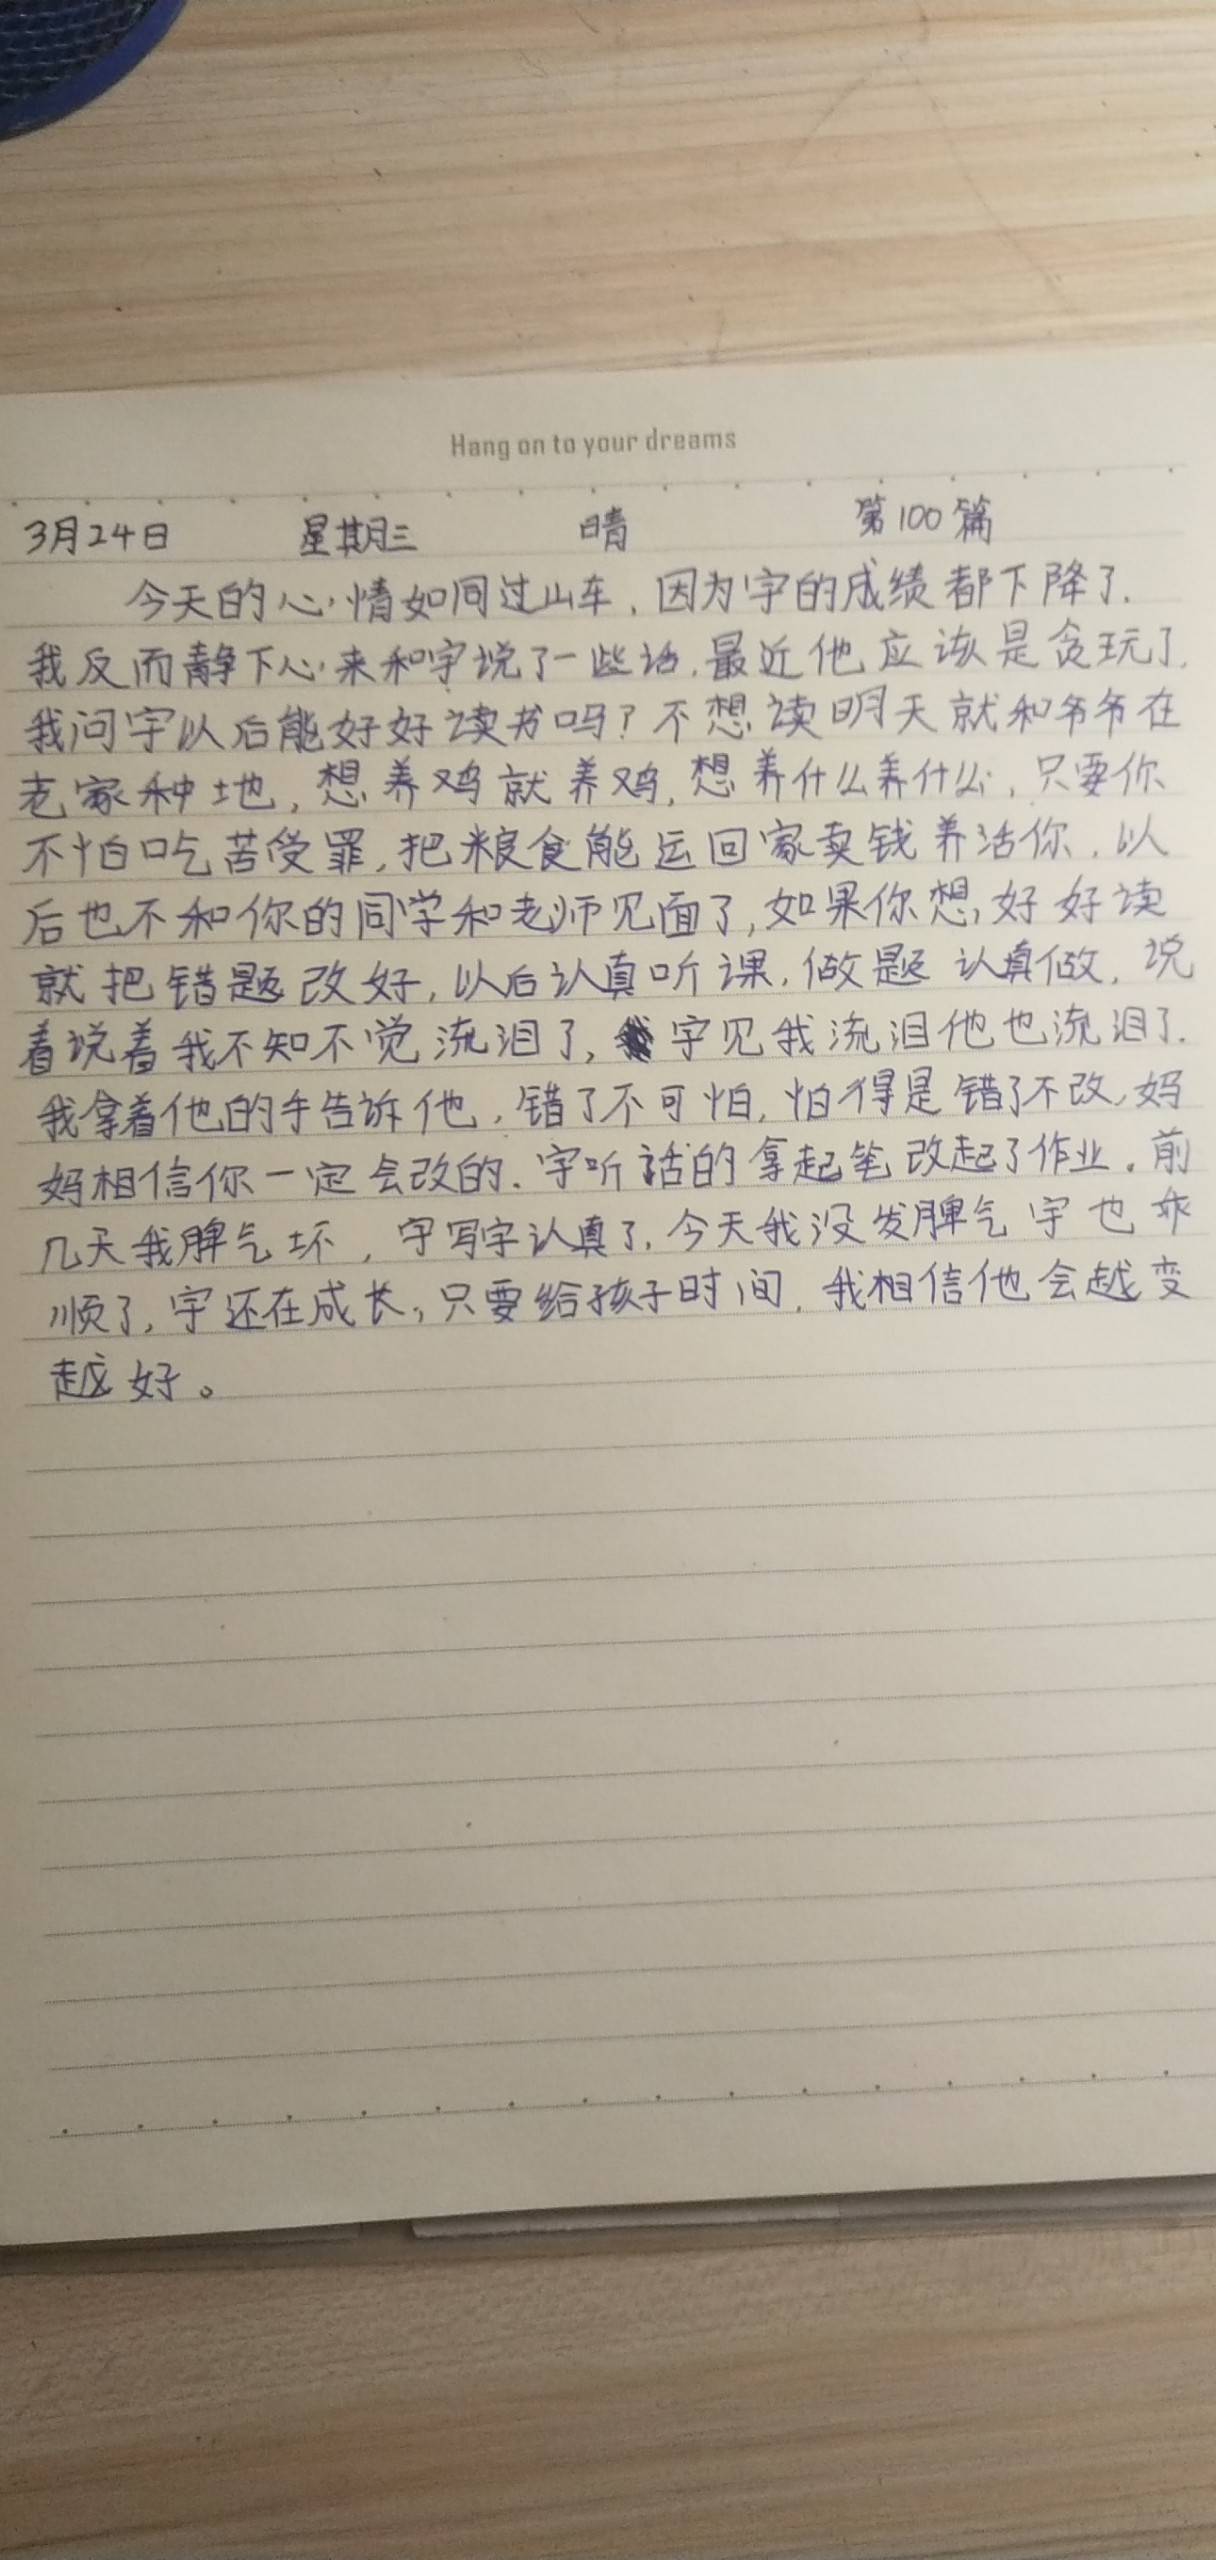 Hang on to your dreams
3月24日 星期三 晴 第100篇
今天的心情如同过山车，因为宇的成绩都下降了.
我反而静下心来和宇说了一些话.最近他应该是贪玩了.
我问宇以后能好好读书吗？不想读明天就和爷爷在
老家种地，想养鸡就养鸡，想养什么养什么，只要你
不怕吃苦受罪，把粮食能运回家卖钱养活你.以
后也不和你的同学和老师见面了，如果你想，好好读
就把错题改好，以后认真听课.做题认真做.说
着说着我不知不觉流泪了，宇见我流泪他也流泪了.
我拿着他的手告诉他，错了不可怕，怕得是错了不改，妈
妈相信你一定会改的.宇听话的拿起笔改起了作业。前
几天我脾气坏，宇写字认真了.今天我没发脾气宇也乖
顺了，宇还在成长，只要给孩子时间，我相信他会越变
越好。